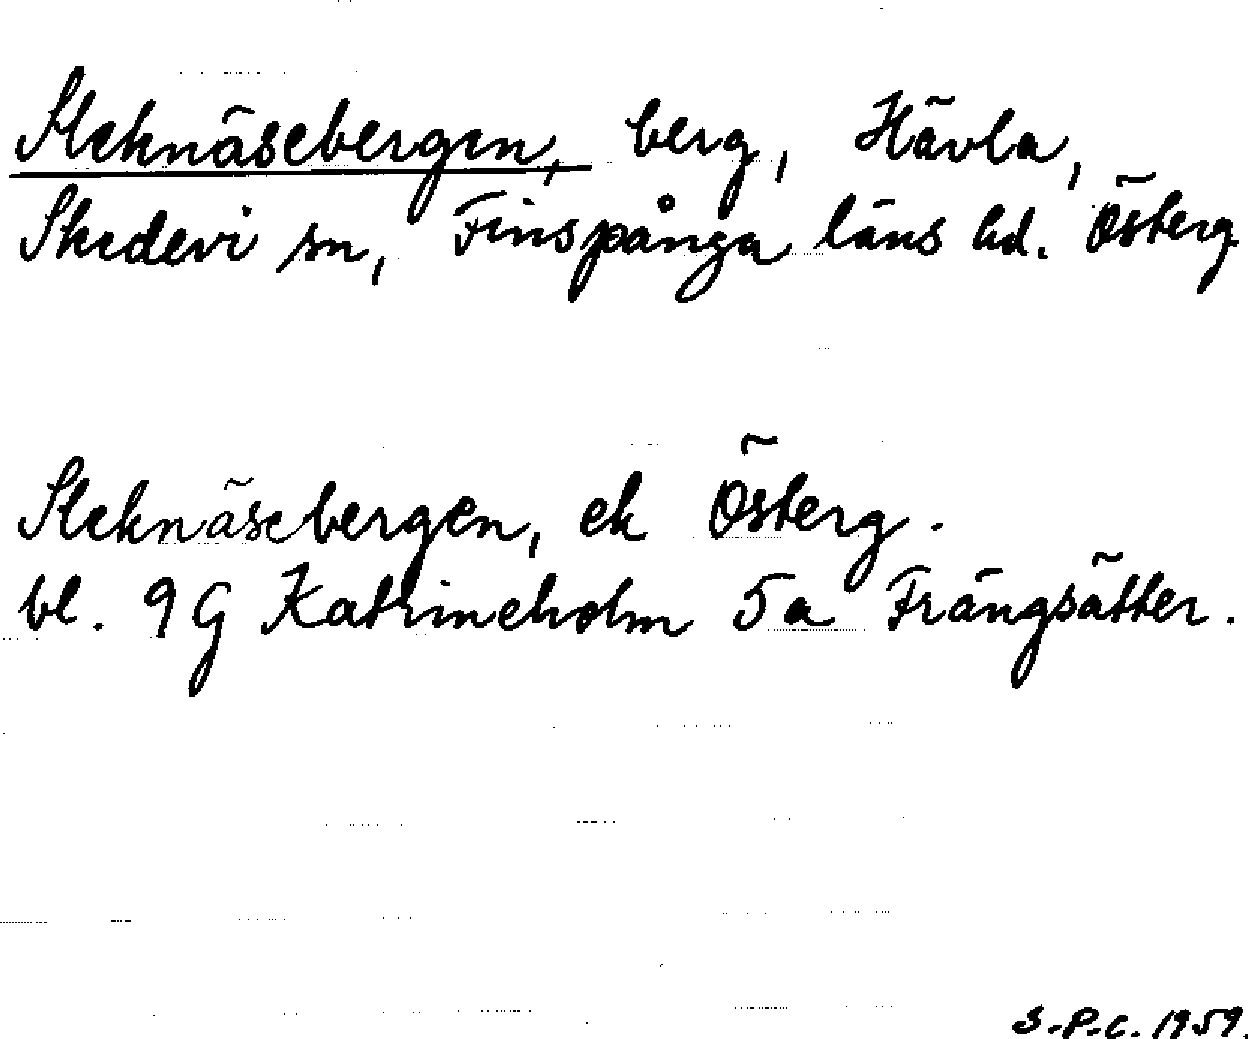 Steknäsebergen, berg, Hävla,
Skedevi sn, Finspånga läns hd. Österg
Steknäsebergen, ek Österg.
bl. 9G Katrineholm 5a Frängsätter.
S.P.C. 1959.